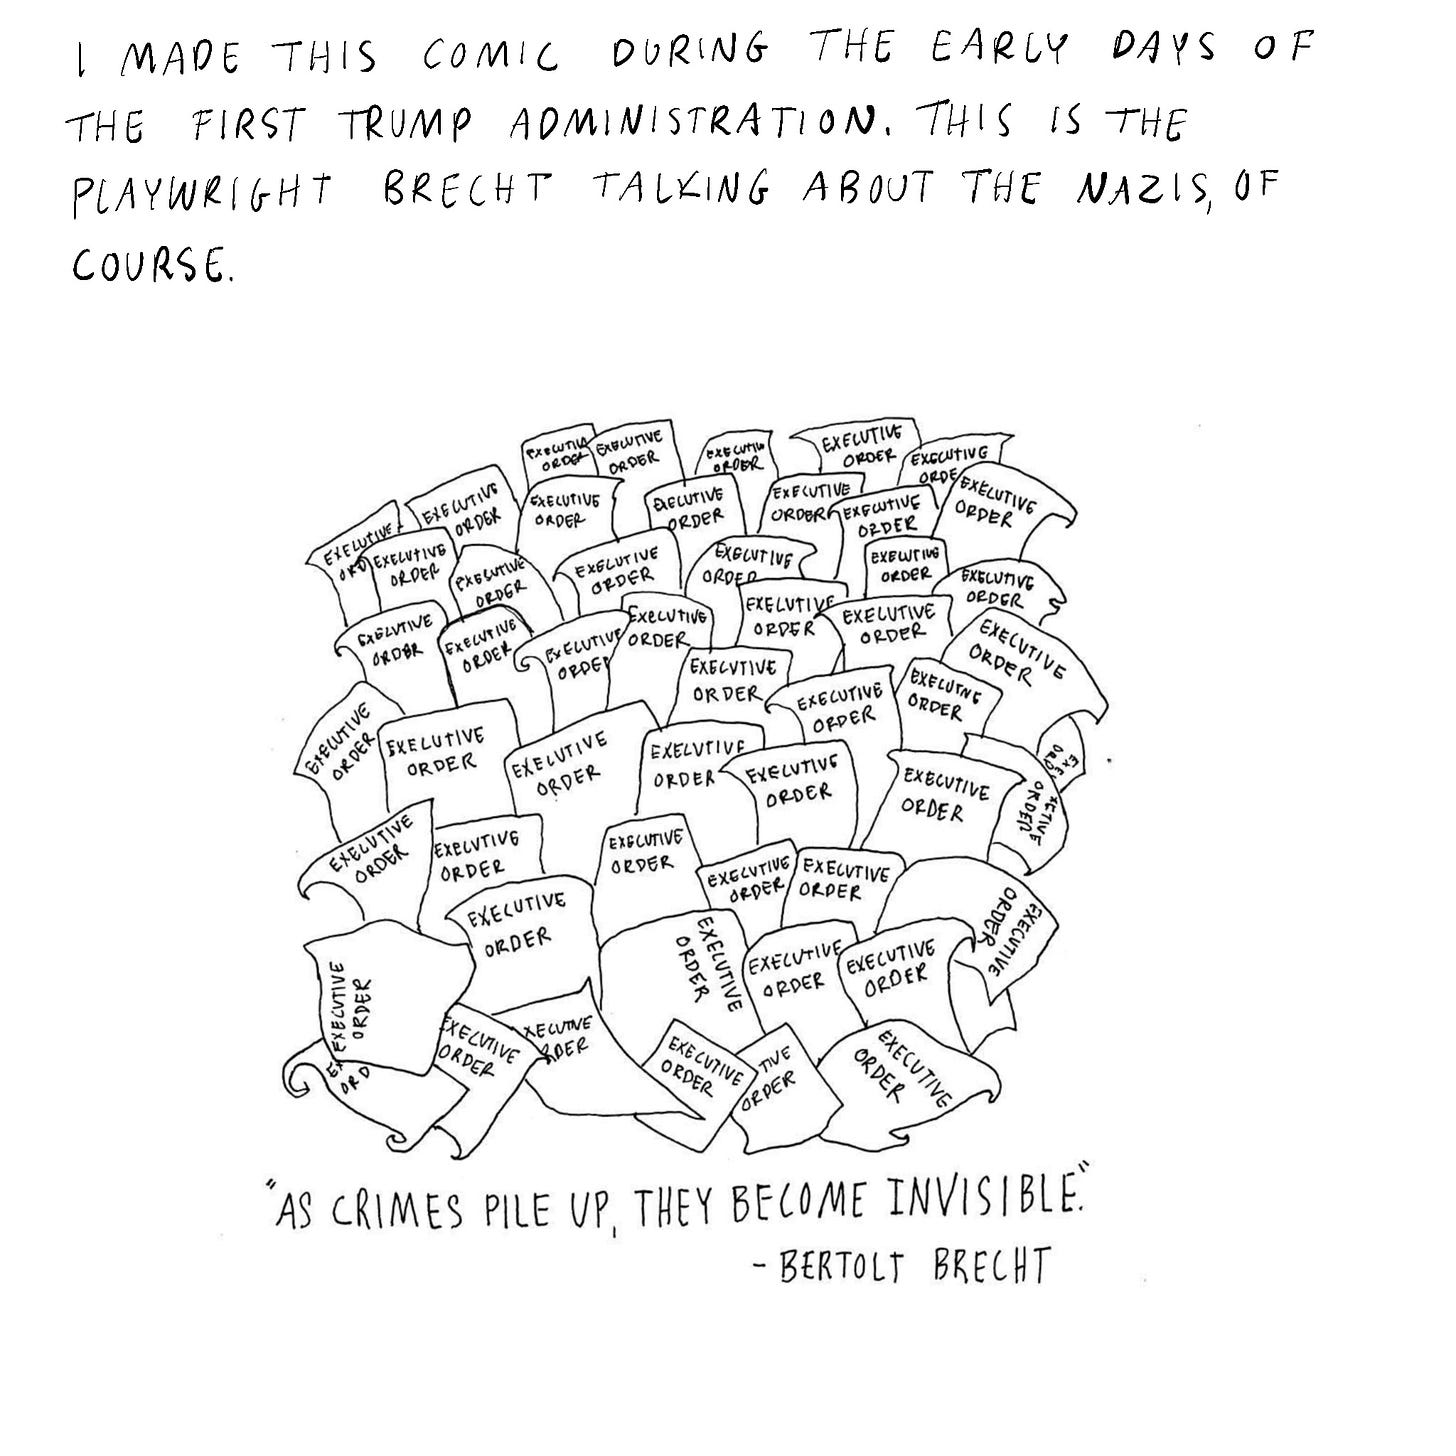 I MADE THIS COMIC DURING THE EARLY DAYS OF
THE FIRST TRUMP ADMINISTRATION. THIS IS THE
PLAYWRIGHT BRECHT TALKING ABOUT THE NAZIS, OF
COURSE.
EXECUTIV
ORDER
EXECUTIVE
ORDER
EXECUTIV
ORDER
EXECUTIVE
ORDER
EXECUTIVE
ORDE
EXECUTIVE
ORDER
EXECUTIVE
ORDER
EXECUTIVE
ORDER
EXECUTIVE
ORDER
EXECUTIVE
ORDER
EXECUTIVE
ORDER
EXECUTIVE
ORD
EXECUTIVE
ORDER
EXECUTIVE
ORDER
EXECUTIVE
ORDER
EXECUTIVE
ORDER
EXECUTIVE
ORDER
EXECUTIVE
ORDER
EXECUTIVE
ORDER
EXECUTIVE
ORDER
EXECUTIVE
ORDER
EXECUTIVE
ORDER
EXECUTIVE
ORDER
EXECUTIVE
ORDER
EXECUTIVE
ORDER
EXECUTIVE
ORDER
EXECUTIVE
ORDER
EXECUTIVE
ORDER
EXECUTIVE
ORDER
EXECUTIVE
ORDER
EXECUTIVE
ORDER
EXECUTIVE
ORDER
EXECUTIVE
ORDER
EXECUTIVE
ORDER
CTIVE
ORDER
EXECUTIVE
ORDER
EXECUTIVE
ORDER
EXECUTIVE
ORDER
EXECUTIVE
ORDER
EXECUTIVE
ORDER
EXECUTIVE
ORDER
EXECUTIVE
ORDER
EXECUTIVE
ORDER
EXECUTIVE
ORDER
EXECUTIVE
ORDER
EXECUTIVE
ORDER
EX
ORD
EXECUTIVE
ORDER
XECUTIVE
RDER
EXECUTIVE
ORDER
TIVE
ORDER
EXECUTIVE
ORDER
"AS CRIMES PILE UP, THEY BECOME INVISIBLE."
- BERTOLT BRECHT